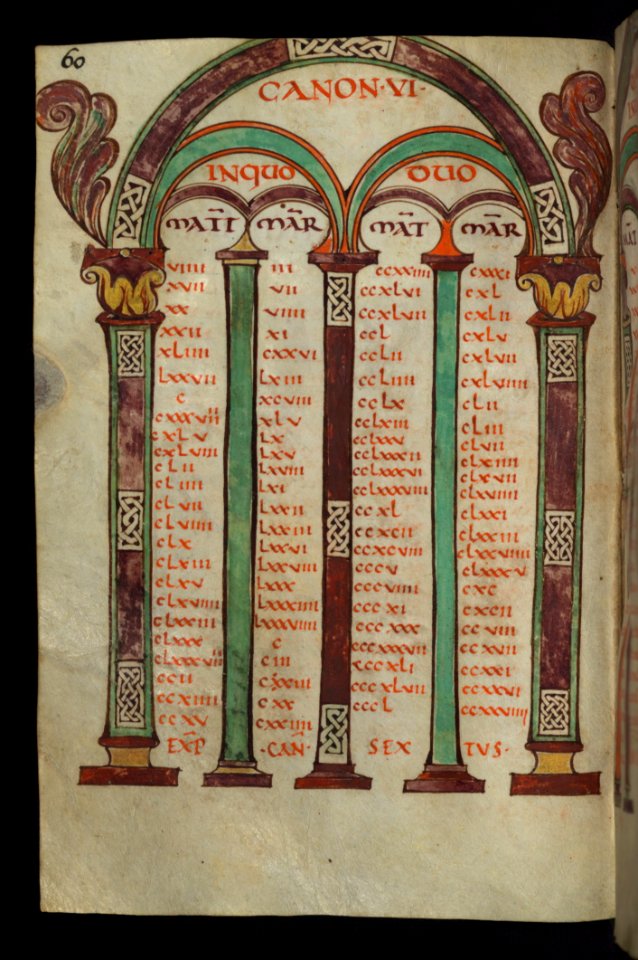 60
CANON·VI·
INQUO DUO
MATT MAR MAT MAR
viiii
xvii
xx
xxii
xLiiii
Lxxvii
c
cxxxvii
cxLv
cxLviii
cLii
cLiiii
cLvii
cLviiii
cLx
cLxiii
cLxv
cLxviiii
cLxxiii
cLxxx
cLxxxvii
ccii
ccxiiii
ccxv
iii
vii
viiii
xi
cxxvi
Lxiii
xcviii
xLv
Lx
Lxv
Lxviii
Lxi
Lxxii
Lxxiii
Lxxvi
Lxxviii
Lxxx
Lxxxiiii
Lxxxviiii
c
ciii
cxxiii
cxx
cxxiiii
ccxxiiii
ccxLvi
ccxLvii
ccL
ccLii
ccLiiii
ccLx
ccLxiii
ccLxxv
ccLxxxii
ccLxxxvi
ccLxxxviiii
ccxL
ccxcii
ccxcviii
cccv
cccviiii
cccxi
cccxxx
cccxxxvii
cccxLi
cccxLvii
cccL
cxxxi
cxL
cxLii
cxLv
cxLvii
cxLviiii
cLii
cLiii
cLvii
cLxiiii
cLxvii
cLxviiii
cLxxi
cLxxiii
cLxxviiii
cLxxxv
cxc
cxcii
ccviii
ccxvii
ccxxi
ccxxvi
ccxxxviiii
EXP ·CAN· SEX TUS·